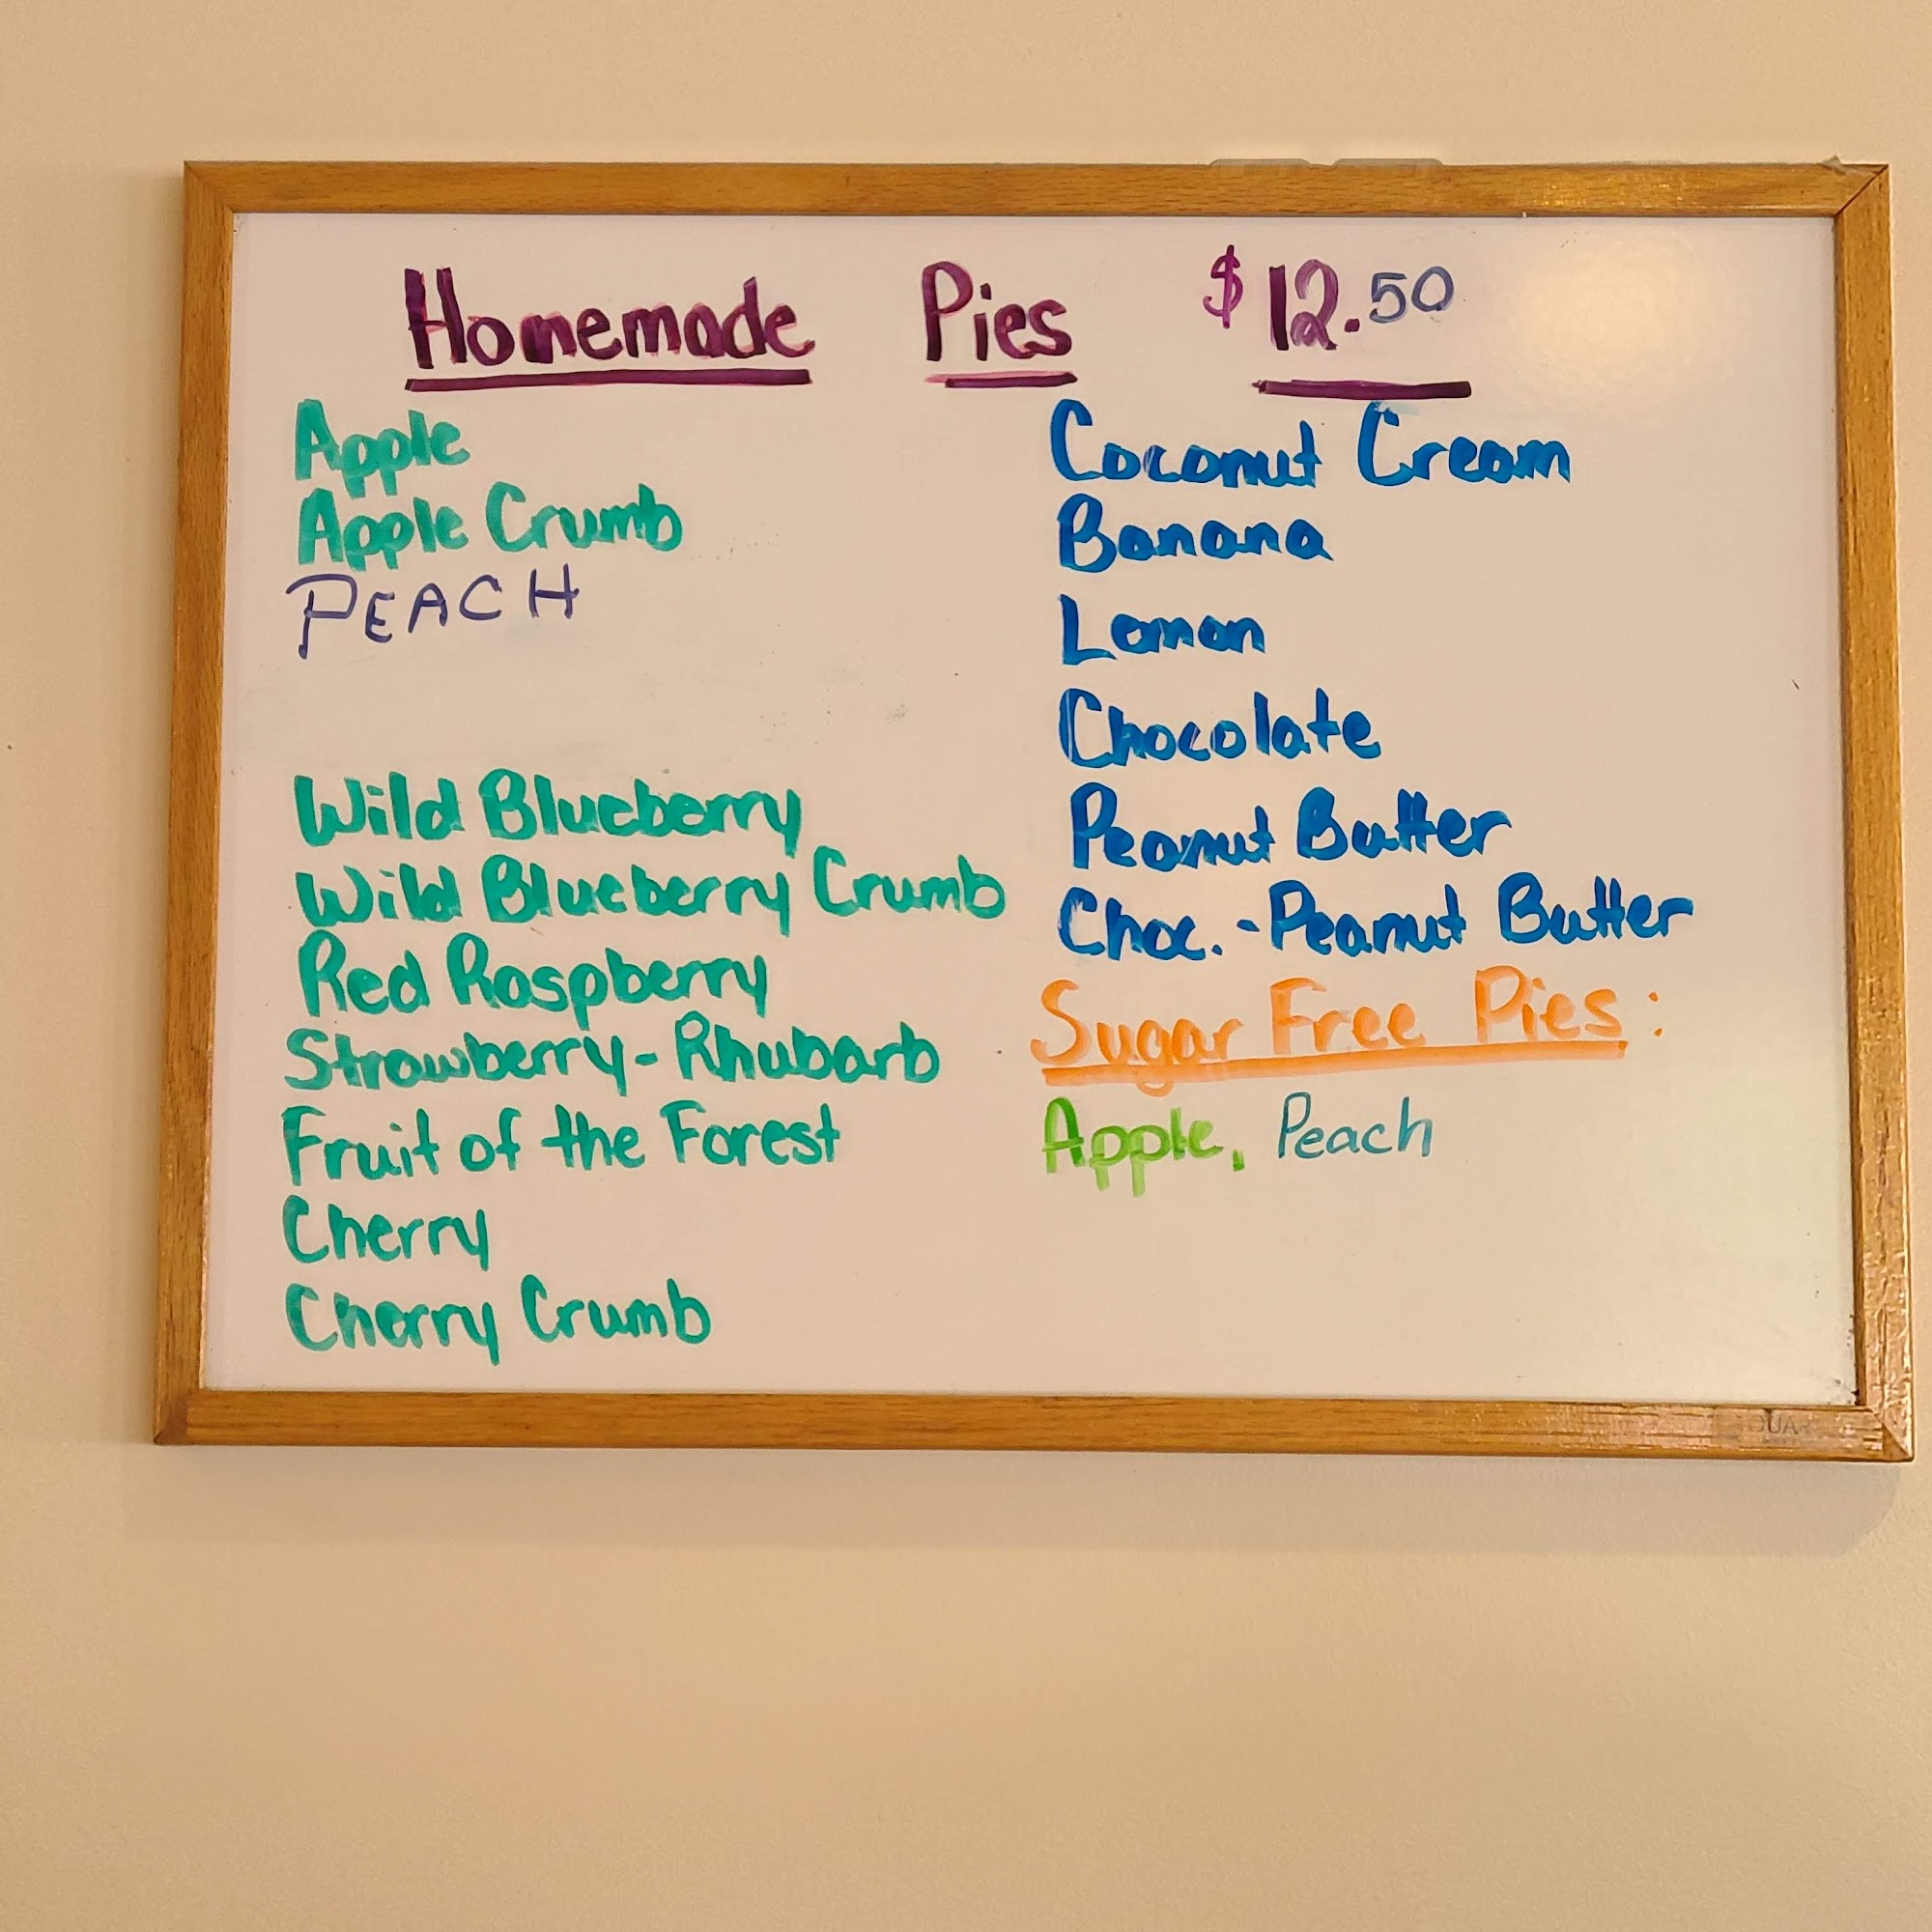 Homemade Pies $12.50
Apple
Apple Crumb
PEACH
Wild Blueberry
Wild Blueberry Crumb
Red Raspberry
Strawberry-Rhubarb
Fruit of the Forest
Cherry
Cherry Crumb
Coconut Cream
Banana
Lemon
Chocolate
Peanut Butter
Choc.-Peanut Butter
Sugar Free Pies:
Apple, Peach